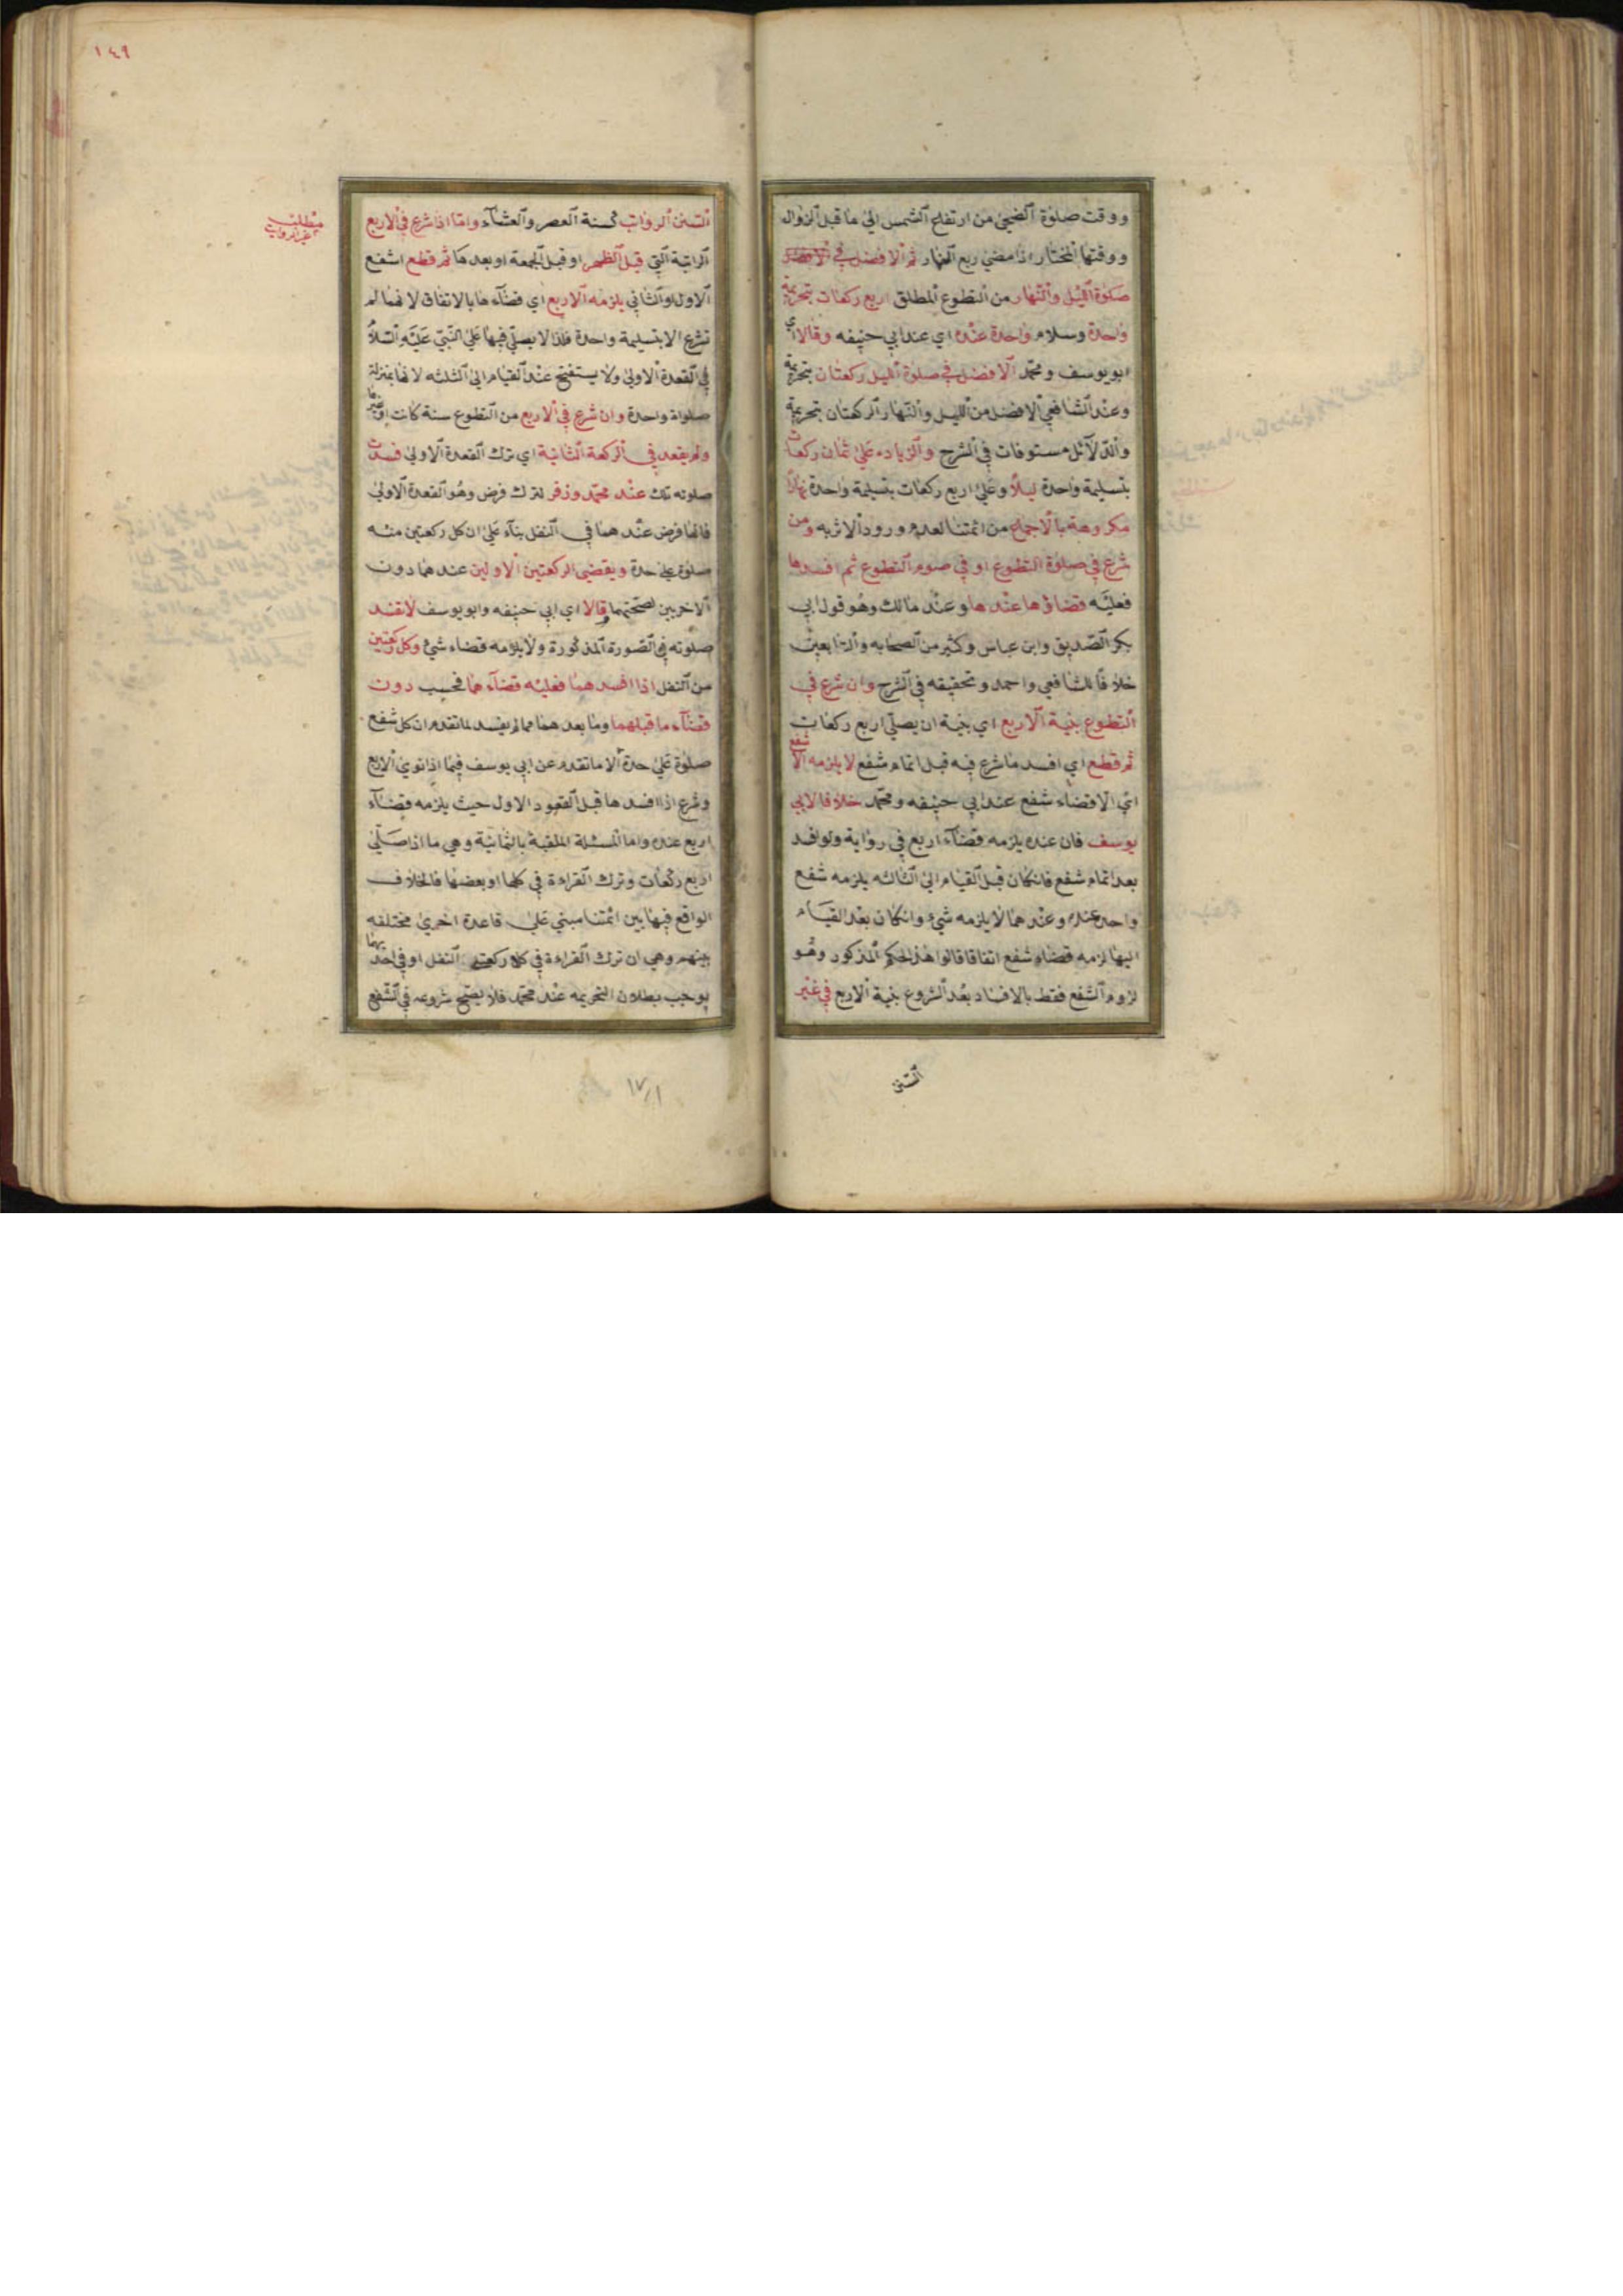 ووقت صلوة الضحى من ارتفاع الشمس الى ما قبل الزوال
ووقتها المختار اذا مضى ربع النهار ثم الافضل في
صلوة الليل والنهار من التطوع المطلق اربع ركعات بتحريمة
واحدة وسلام واحدة عنده اي عند ابي حنيفه وقالا اي
ابو يوسف ومحمد الافضل في صلوة الليل ركعتان بتحريمة
وعند الشافعي الافضل من الليل والنهار الركعتان بتحريمة
والدلآئل مستوفات في الشرح والزياده على ثمان ركعات
بتسليمة واحدة ليلا وعلى اربع ركعات بتسليمة واحدة نهارا
مكروهة بالاجماع من ائمتنا لعدم ورود الاثر به ومن
شرع في صلوة التطوع او في صوم التطوع ثم افسدها
فعليه قضاؤها عندها وعند مالك وهو قول ابي
بكر الصديق وابن عباس وكثير من الصحابه والتابعين
خلافا للشافعي واحمد وتحقيقه في الشرح وان شرع في
التطوع بنية الاربع اي بنية ان يصلي اربع ركعات
ثم قطع اي افسد ما شرع فيه قبل اتمام شفع لا يلزمه الا شفع
اي الا قضاء شفع عند ابي حنيفه ومحمد خلافا لابي
يوسف فان عنده يلزمه قضآء اربع في رواية ولو افسد
بعد اتمام شفع فان كان قبل القيام الى الثالثه يلزمه شفع
واحد عنده وعندهما لا يلزمه شيء وان كان بعد القيام
اليها لزمه قضاء شفع اتفاقا قالوا هذا الحكم المذكور وهو
لزوم الشفع فقط بالافساد بعد الشروع بنية الاربع في غير
السنن
١٤٩
السنن الرواتب كسنة العصر والعشآء واما اذا شرع في الاربع
الراتبة التي قبل الظهر او قبل الجمعة او بعدها ثم قطع اشفع
الاول او الثاني يلزمه الاربع اي قضآءها بالاتفاق لانها لم
تشرع الا بتسليمة واحدة فلذا لا يصلي فيها على النبي عليه السلام
في القعدة الاولى ولا يستفتح عند القيام الى الثلثه لانها بمنزلة
صلواة واحدة وان شرع في الاربع من التطوع سنة كانت او غيرها
ولم يقعد في الركعة الثانية اي ترك القعدة الاولى فسدت
صلوته تلك عند محمد وزفر لترك فرض وهو القعدة الاولى
فانها فرض عندهما في النفل بنآء على ان كل ركعتين منه
صلوة على حدة ويقضي الركعتين الاوليين عندهما دون
الاخريين لصحتهما وقالا اي ابي حنيفه وابو يوسف لا تفسد
صلوته في الصورة المذكورة ولا يلزمه قضاء شيء وكل ركعتين
من النفل اذا افسدهما فعليه قضآءهما فحسب دون
قضآء ما قبلهما وما بعدهما مما لم يفسد لما تقدم ان كل شفع
صلوة على حدة الا ما تقدم عن ابي يوسف فيما اذا نوى الاربع
وشرع اذا افسدها قبل القعود الاول حيث يلزمه قضآء
اربع عنده واما المسئلة الملقبة بالثمانية وهي ما اذا صلى
اربع ركعات وترك القراءة في كلها او بعضها فالخلاف
الواقع فيها بين ائمتنا مبني على قاعدة اخرى مختلفه
بينهم وهي ان ترك القراءة في كل ركعتي النفل او في احديهما
يوجب بطلان التحريمه عند محمد فلا يصح شروعه في الشفع
مطلب